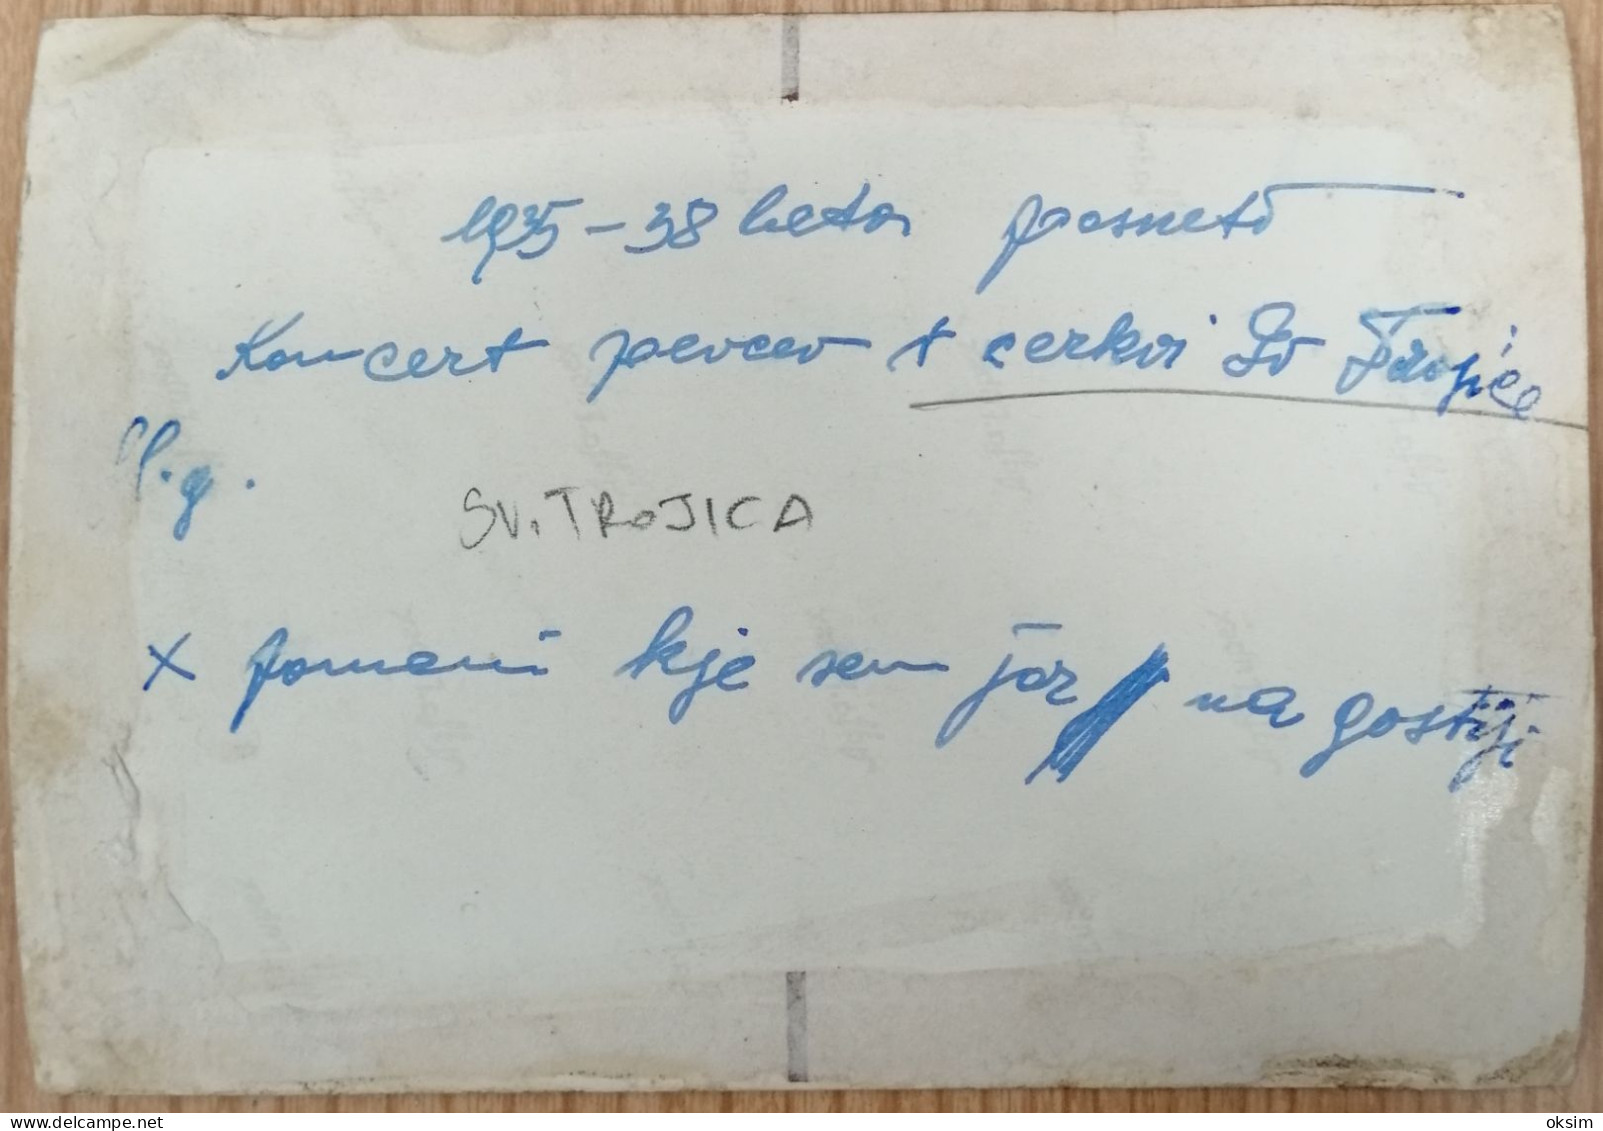 1935-38 leta posneto
Koncert pevcev v cerkvi Sv Trojice
Sl. g.
SV. TROJICA
x pomeni kje sem jaz na gostiji
delcampe.net
oksim